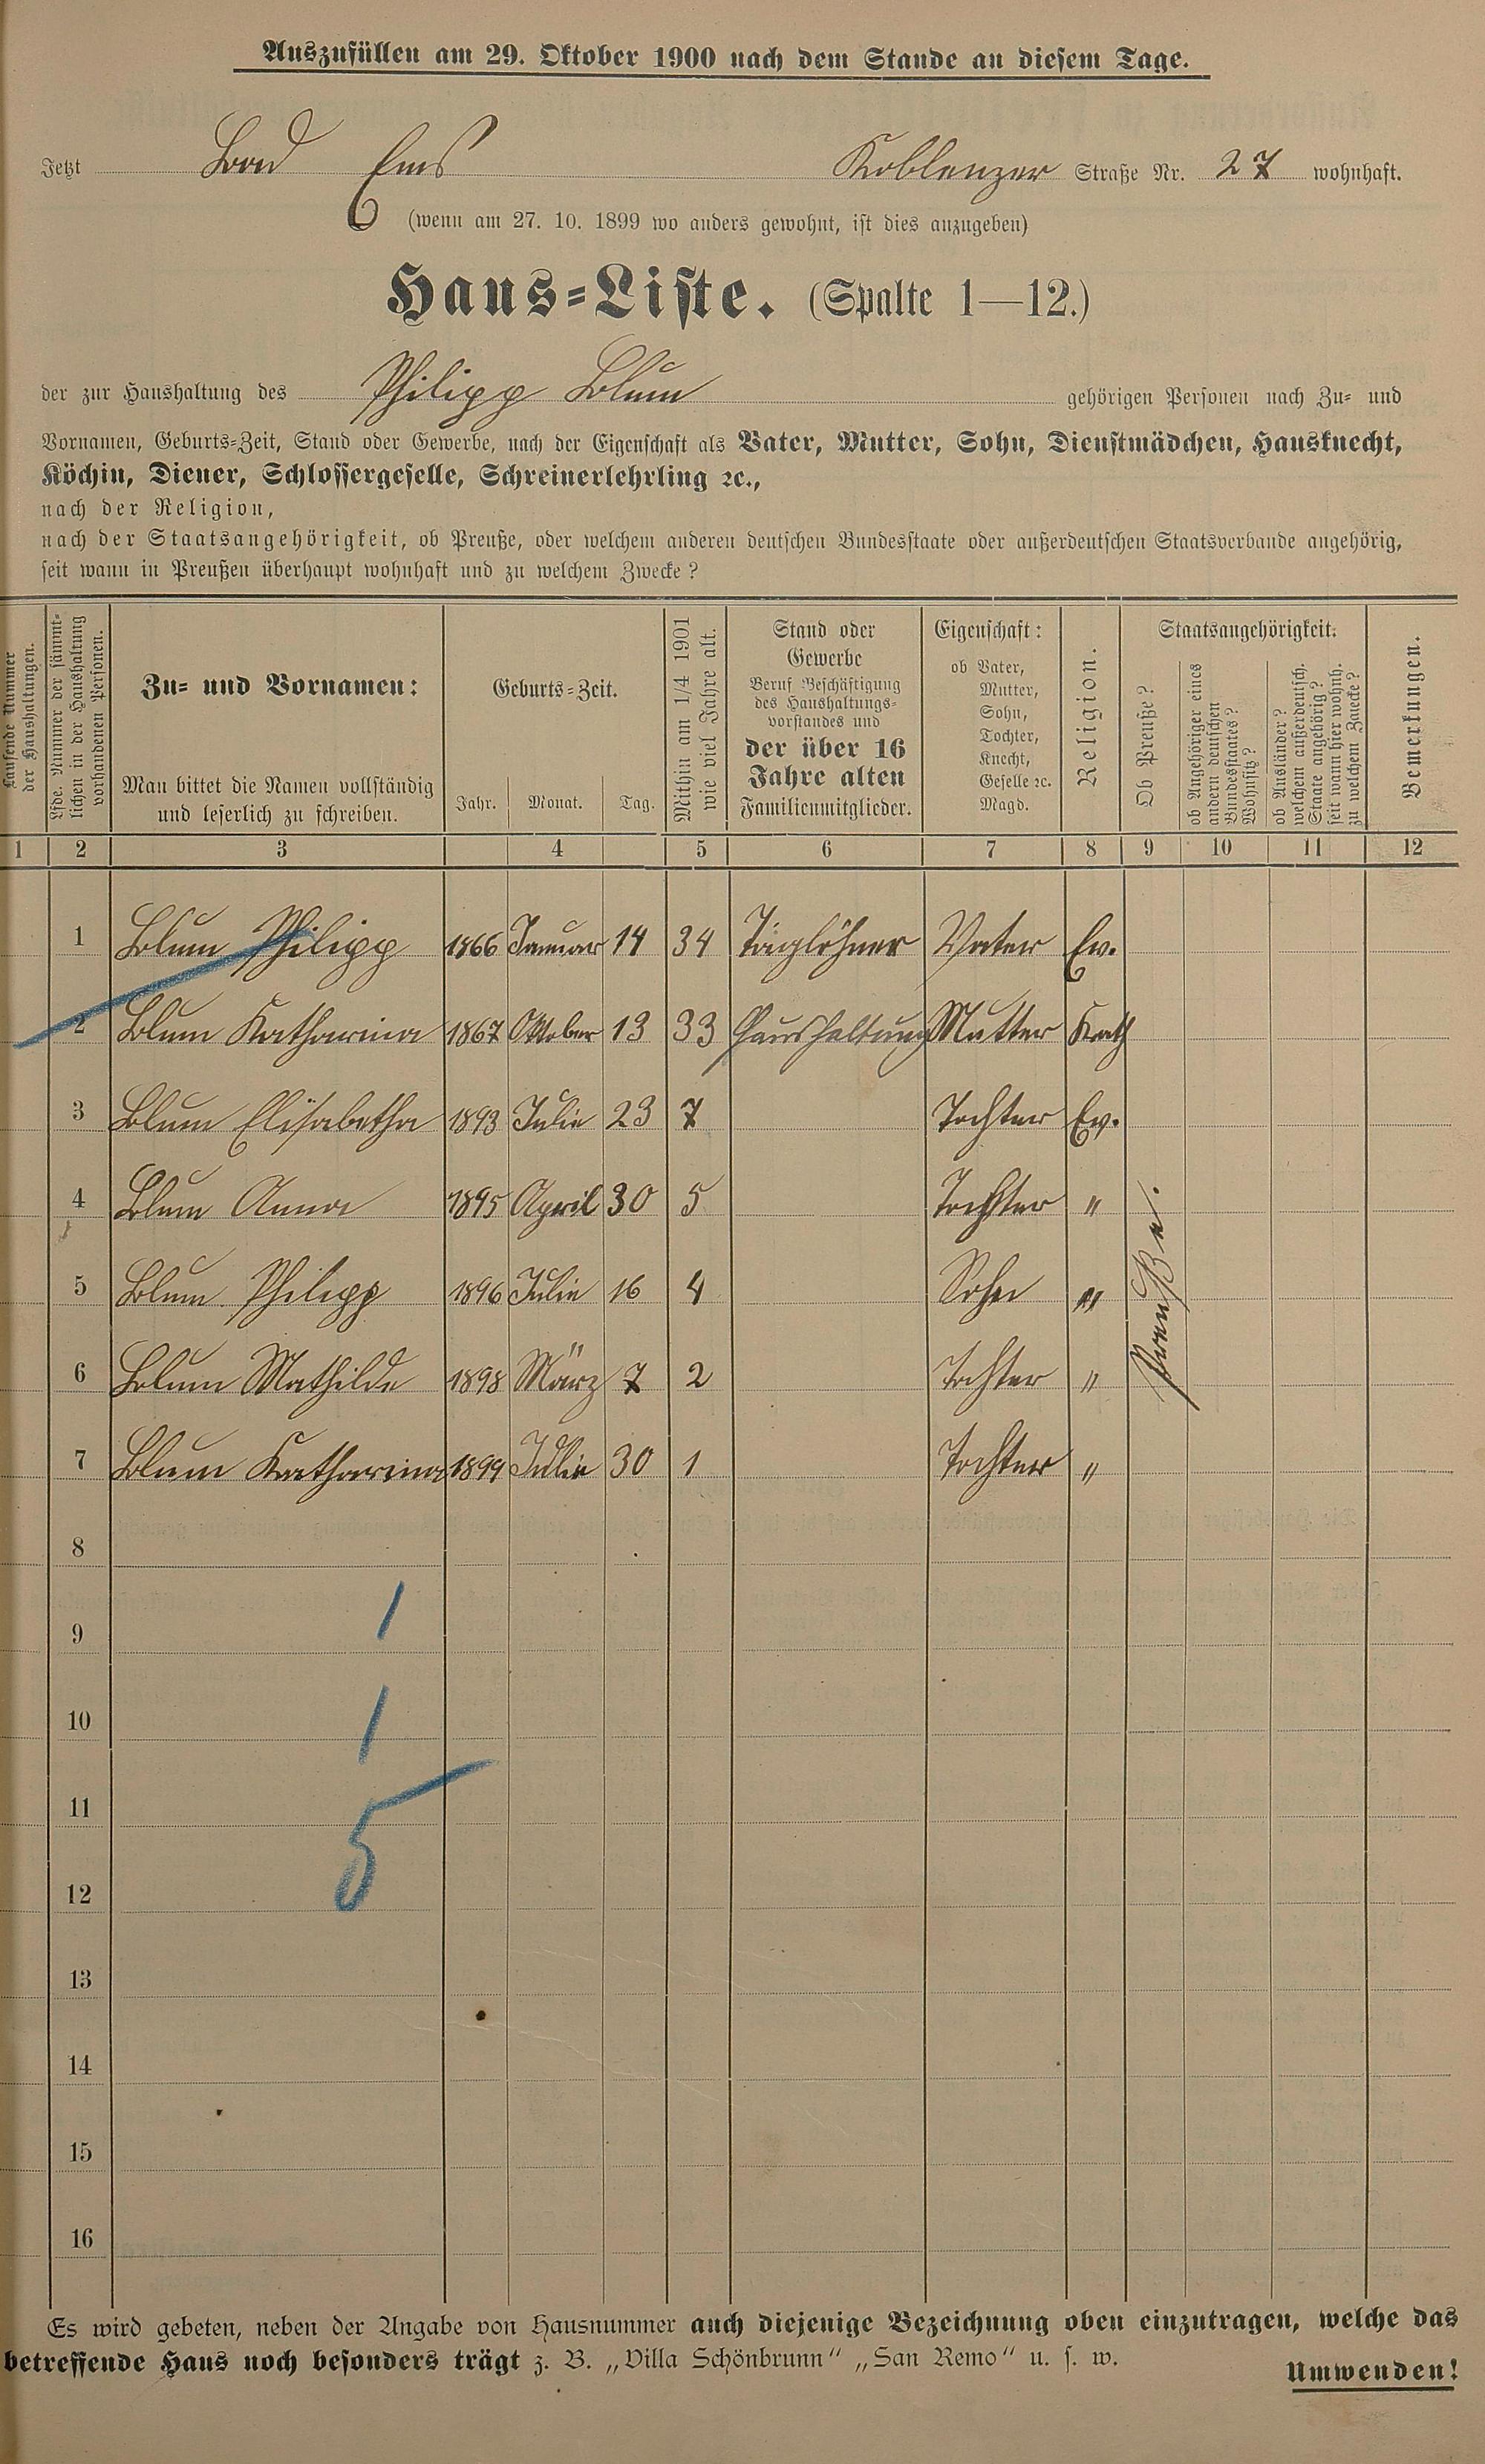 Auszufüllen am 29. Oktober 1900 nach dem Stande an diesem Tage.
Jetzt Bad Ems Koblenzer Straße Nr. 27 wohnhaft.
(wenn am 27. 10. 1899 wo anders gewohnt, ist dies anzugeben)
Haus=Liste. (Spalte 1—12.)
der zur Haushaltung des Philipp Blum gehörigen Personen nach Zu= und
Vornamen, Geburts=Zeit, Stand oder Gewerbe, nach der Eigenschaft als Vater, Mutter, Sohn, Dienstmädchen, Hausknecht,
Köchin, Diener, Schlossergeselle, Schreinerlehrling ꝛc.,
nach der Religion,
nach der Staatsangehörigkeit, ob Preuße, oder welchem anderen deutschen Bundesstaate oder außerdeutschen Staatsverbande angehörig,
seit wann in Preußen überhaupt wohnhaft und zu welchem Zwecke?
Laufende Nummer
der Haushaltungen.
Lfde. Nummer der sämmt-
lichen in der Haushaltung
vorhandenen Personen.
Zu= und Vornamen:
Man bittet die Namen vollständig
und leserlich zu schreiben.
Geburts=Zeit.
Jahr. Monat. Tag.
Mithin am 1/4 1901
wie viel Jahre alt.
Stand oder
Gewerbe
Beruf Beschäftigung
des Haushaltungs-
vorstandes und
der über 16
Jahre alten
Familienmitglieder.
Eigenschaft:
ob Vater,
Mutter,
Sohn,
Tochter,
Knecht,
Geselle ꝛc.
Magd.
Religion.
Staatsangehörigkeit.
Ob Preuße?
ob Angehöriger eines
andern deutschen
Bundesstaates?
Wohnsitz?
ob Ausländer?
welchem außerdeutsch.
Staate angehörig?
seit wann hier wohnh.
zu welchem Zwecke?
Bemerkungen.
1 2 3 4 5 6 7 8 9 10 11 12
1 Blum Philipp 1866 Januar 14 34 Taglöhner Vater Ev.
2 Blum Katharina 1867 Oktober 13 33 Haushaltung Mutter Kath
3 Blum Elisabetha 1893 Julie 23 7 Tochter Ev.
4 Blum Anna 1895 April 30 5 Tochter "
5 Blum Philipp 1896 Julie 16 4 Sohn "
6 Blum Mathilde 1898 März 7 2 Tochter "
7 Blum Katharina 1899 Julie 30 1 Tochter "
Preuße.
8
9 1
10 1
11
12 5
13
14
15
16
Es wird gebeten, neben der Angabe von Hausnummer auch diejenige Bezeichnung oben einzutragen, welche das
betreffende Haus noch besonders trägt z. B. „Villa Schönbrunn“ „San Remo“ u. s. w.
Umwenden!